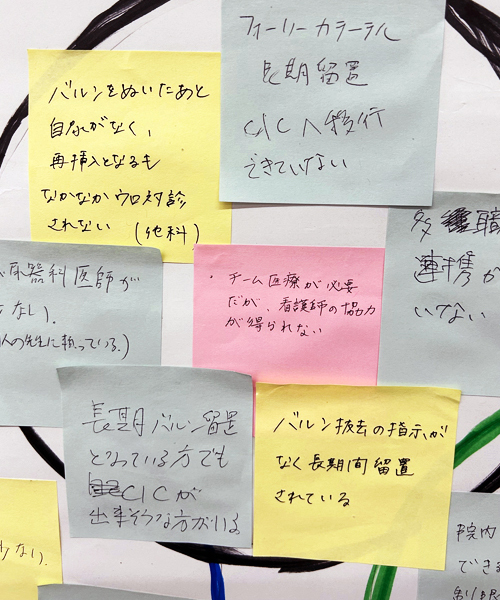 フォーリーカテーテル
長期留置
CICへ移行
できていない
バルンをぬいたあと
自尿がなく、
再挿入となるも
なかなかウロ対診
されない (他科)
多職
連携が
いてない
尿器科医師が
ない.
人の先生に頼っている.)
・チーム医療が必要
だが、看護師の協力
が得られない
長期バルン留置
となっている方でも
CICが
出来そうな方がいる
バルン抜去の指示が
なく長期間留置
されている
ない.
院内
でき